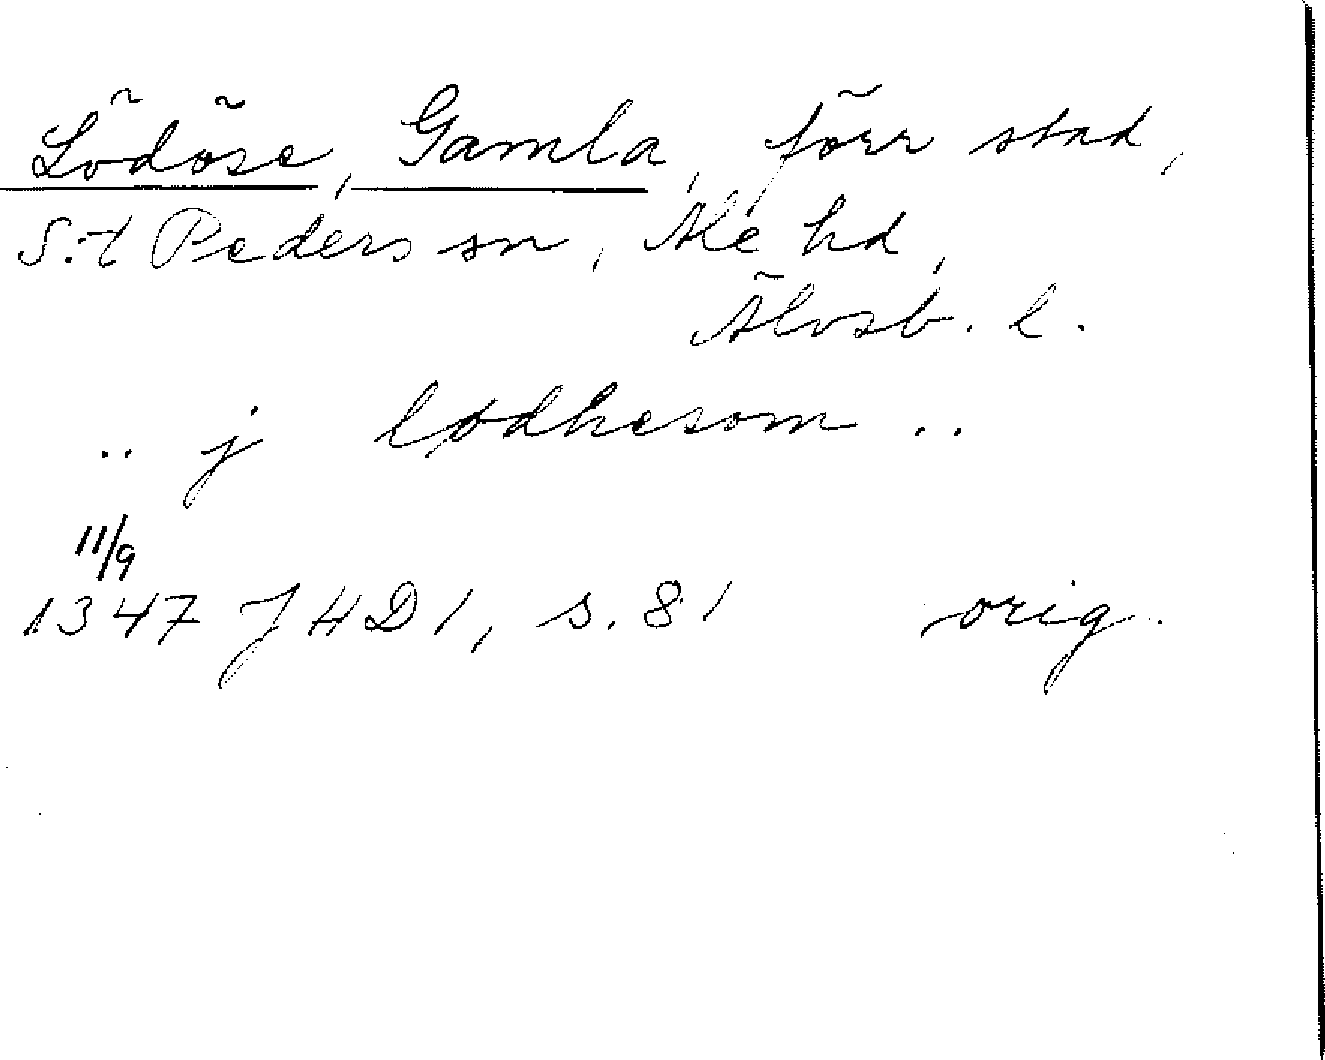 Lödöse, Gamla, förr stad,
S:t Peders sn, Ale hd,
Älvsb. l.
.. j lødhesom ..
11/9
1347 JHD 1, s. 81 orig.